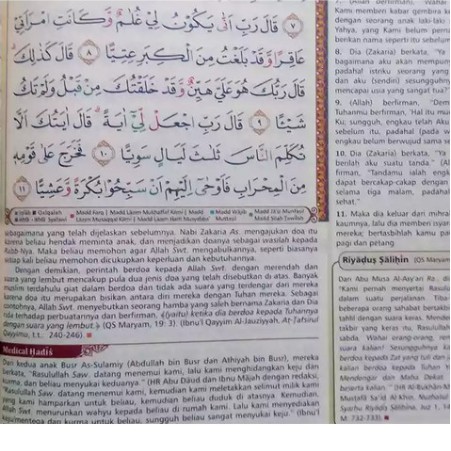 ٧ قَالَ رَبِّ اَنّٰى يَكُوْنُ لِيْ غُلٰمٌ وَّكَانَتِ امْرَاَتِيْ
عَاقِرًا وَّقَدْ بَلَغْتُ مِنَ الْكِبَرِ عِتِيًّا ٨ قَالَ كَذٰلِكَ
قَالَ رَبُّكَ هُوَ عَلَيَّ هَيِّنٌ وَّقَدْ خَلَقْتُكَ مِنْ قَبْلُ وَلَمْ تَكُ
شَيْـًٔا ٩ قَالَ رَبِّ اجْعَلْ لِّيْٓ اٰيَةً ۗ قَالَ اٰيَتُكَ اَلَّا
تُكَلِّمَ النَّاسَ ثَلٰثَ لَيَالٍ سَوِيًّا ١٠ فَخَرَجَ عَلٰى قَوْمِهٖ
مِنَ الْمِحْرَابِ فَاَوْحٰٓى اِلَيْهِمْ اَنْ سَبِّحُوْا بُكْرَةً وَّعَشِيًّا ١١
sebagaimana yang telah dijelaskan sebelumnya. Nabi Zakaria As. mengajukan doa itu
karena beliau hendak meminta anak, dan menjadikan doanya sebagai wasilah kepada
Rabb-Nya. Maka beliau memohon agar Allah Swt. mengabulkannya, seperti biasanya
setiap kali beliau memohon dicukupkan keperluan dan kebutuhannya.
Dengan demikian, perintah berdoa kepada Allah Swt. dengan merendah dan
suara yang lembut mencakup pula dua jenis doa yang telah disebutkan di atas. Banyak
muslim terdahulu giat dalam berdoa dan tidak ada suara yang terdengar dari mereka
karena doa itu merupakan bisikan antara diri mereka dengan Tuhan mereka. Sebagai
contohnya, Allah Swt. menyebutkan seorang hamba yang saleh bernama Zakaria dan Dia
rida terhadap perbuatannya dan berfirman, (yaitu) ketika dia berdoa kepada Tuhannya
dengan suara yang lembut. (QS Maryam, 19: 3). (Ibnu'l Qayyim Al-Jauziyyah, At-Tafsirul
Qayyimu, t.t.: 240-246)
Medical Hadiś
Dari kedua anak Busr As-Sulamiy (Abdullah bin Busr dan Athiyah bin Busr), mereka
berkata, "Rasulullah Saw. datang menemui kami, lalu kami menghidangkan keju dan
kurma, dan beliau menyukai keduanya." (HR Abu Dāud dan Ibnu Mājah dengan redaksi,
"Rasulullah Saw. datang menemui kami, kemudian kami meletakkan selimut milik kami
yang kami hamparkan untuk beliau, kemudian beliau duduk di atasnya. Kemudian,
Allah Swt. menurunkan wahyu kepada beliau di rumah kami. Lalu kami menyediakan
keju/mentega dan kurma untuk beliau, sungguh beliau sangat menyukai keju." (Ibnu'l
Kami memberi kabar gembira k
dengan seorang anak laki-laki
Yahya, yang Kami belum pernah
berikan nama seperti itu sebelum
8. Dia (Zakaria) berkata, "Ya
bagaimana aku akan mempun
padahal istriku seorang yang
dan aku (sendiri) sesungguhny
mencapai usia yang sangat tua?"
9. (Allah) berfirman, "Dem
Tuhanmu berfirman, 'Hal itu mu
Ku, sungguh, engkau telah Aku
sebelum itu, padahal (pada w
engkau belum berwujud sama se
10. Dia (Zakaria) berkata, "Ya
berilah aku suatu tanda." (All
firman, "Tandamu ialah engk
dapat bercakap-cakap dengan
selama tiga malam, padahal
sehat."
11. Maka dia keluar dari mihra
kaumnya, lalu dia memberi isyar
mereka; bertasbihlah kamu pa
pagi dan petang.
Riyāḍuṣ Ṣāliḥīn (QS Maryam
Dari Abu Musa Al-Asy'ari
"Kami pernah menyertai Rasul
dalam suatu perjalanan.
beberapa orang sahabat bertakb
tahlil dengan suara keras. Mende
takbir yang keras itu, Rasulullah
sabda, 'Wahai orang-orang, ren
suara kalian! Sesungguhnya k
berdoa kepada Zat yang tuli dan
kalian berdoa kepada Tuhan Y
Mendengar dan Maha Dekat
beserta kalian.'" (HR Al-Bukhāri-M
Mustafā Sa'īd Al-Khin,
Syarhu Riyādis Sālihīna, Juz 2,
M: 732-733)